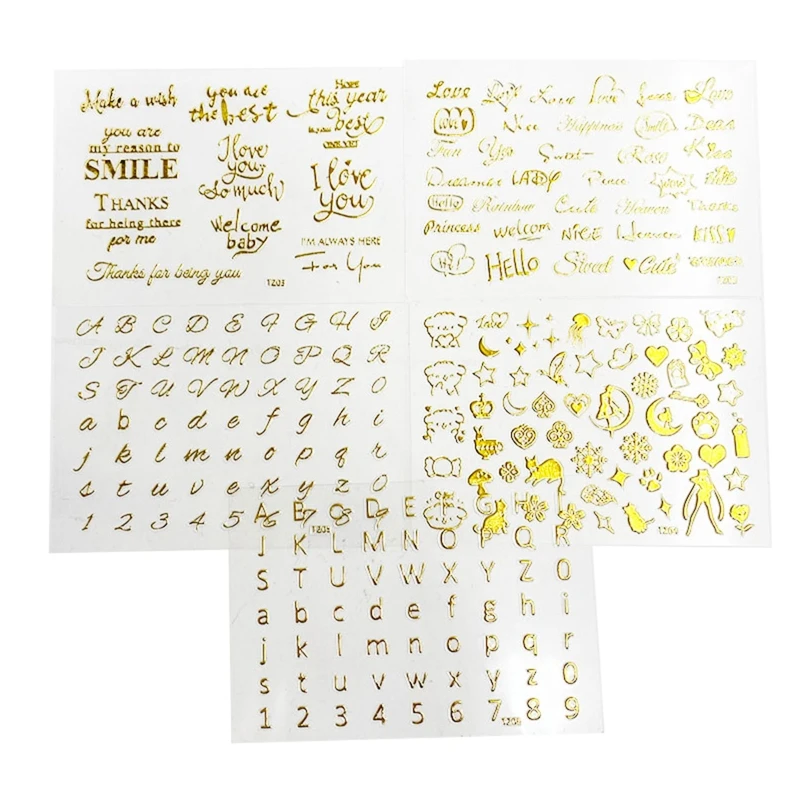 Make a wish
you are
the best
Hope
this year
best
you are
my reason to
SMILE
I love
you
so much
I love
you
THANKS
for being there
for me
Welcome
baby
I'M ALWAYS HERE
For You
Thanks for being you
TZ03
Love Love Love Love
Nice Happiness Smile Dear
Fun You Sweet Rose Kiss
Dreamer LADY Peace WOW
Hello Rainbow Cute Heaven Thanks
Princess welcom NICE Heaven KISS
Hi HELLO Sweet Cute
A B C D E F G H I
J K L M N O P Q R
S T U V W X Y Z 0
a b c d e f g h i
j k l m n o p q r
s t u v e x y z 0
1 2 3 4 5 6 7 8 9
Love
A B C D E G H I
J K L M N O P Q R
S T U V W X Y Z 0
a b c d e f g h i
j k l m n o p q r
s t u v w x y z 0
1 2 3 4 5 6 7 8 9